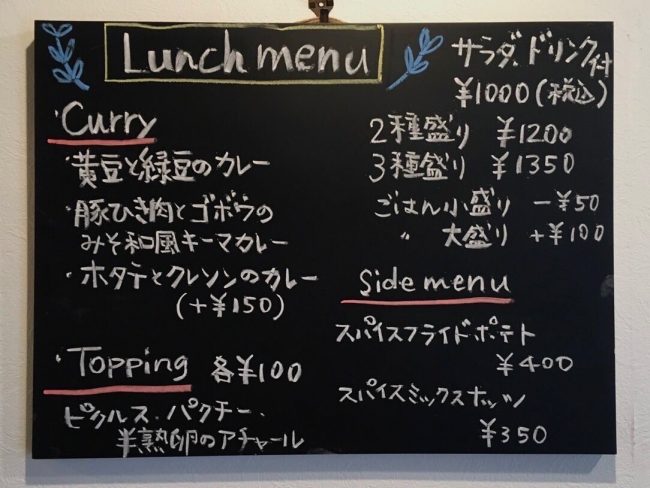 Lunch menu
サラダ、ドリンク付
¥1000(税込)
・Curry
・黄豆と緑豆のカレー
・豚ひき肉とゴボウの
みそ和風キーマカレー
・ホタテとクレソンのカレー
(+¥150)
2種盛り ¥1200
3種盛り ¥1350
ごはん小盛り -¥50
〃 大盛り +¥100
・Topping 各¥100
ピクルス・パクチー・
半熟卵のアチャール
Side menu
スパイスフライドポテト
¥400
スパイスミックスナッツ
¥350